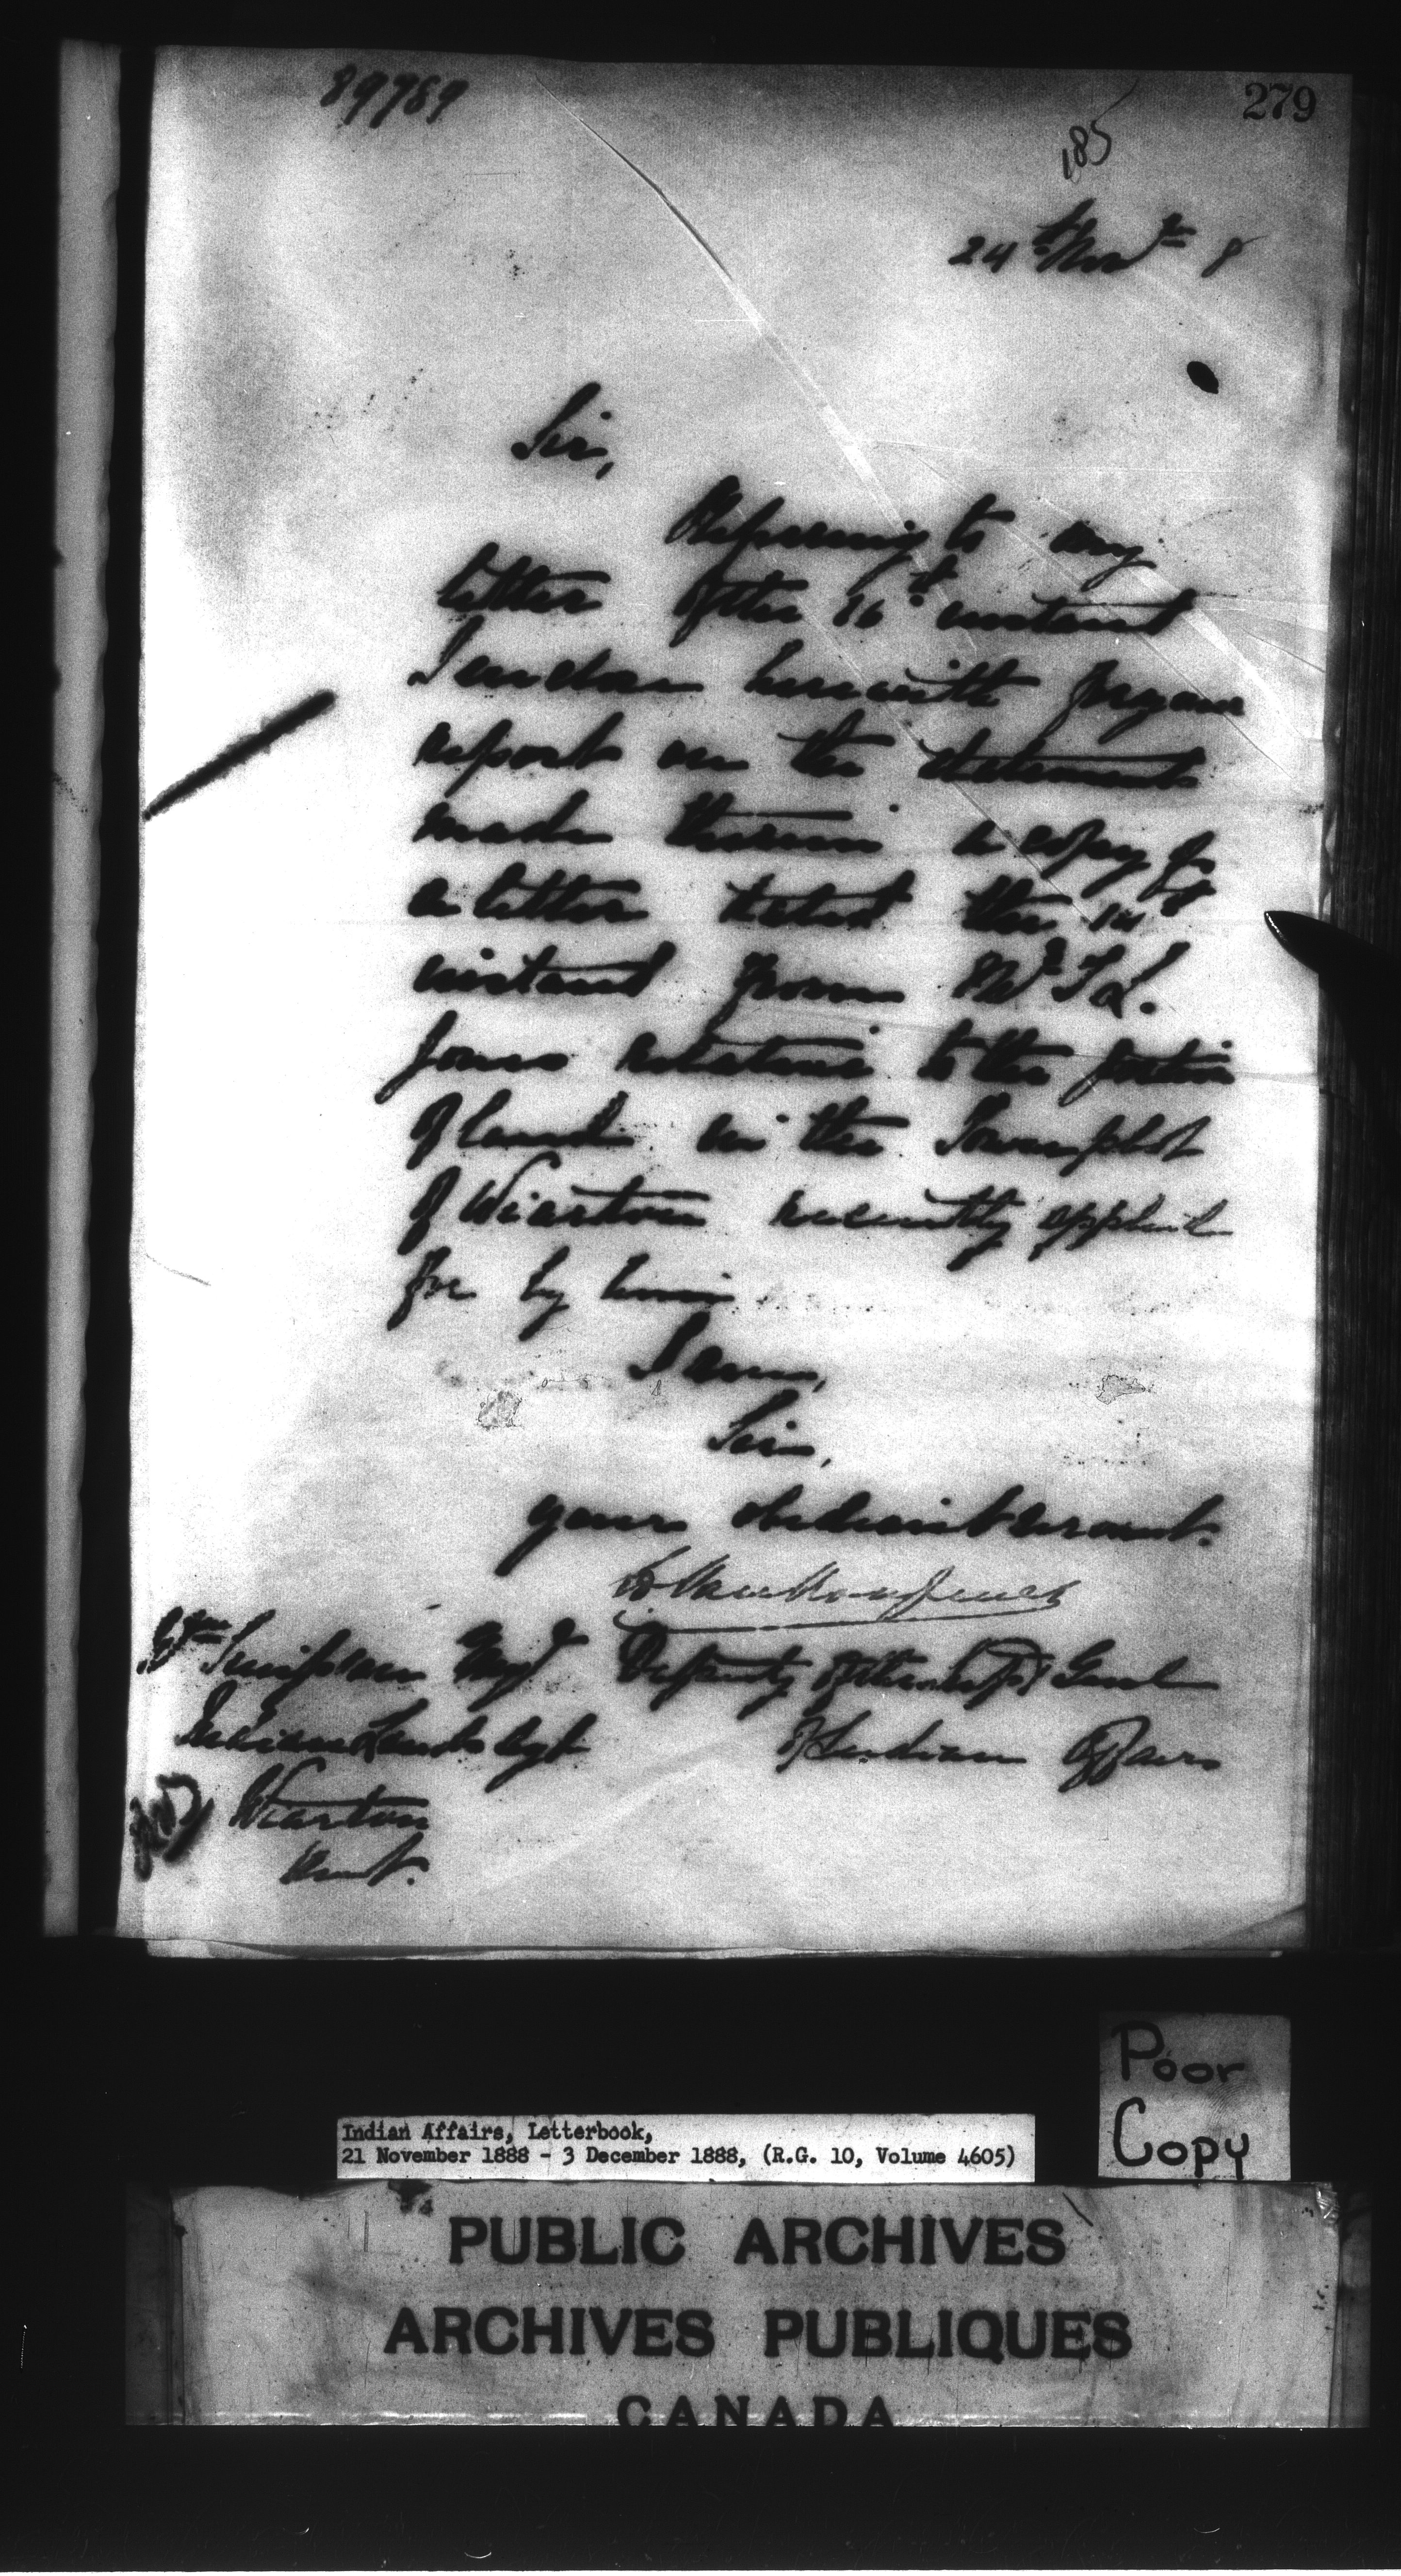 89789
279
185
24th Novr 8
Sir,
Referring to my
letter of the 16th instant
I enclose herewith for your
report on the statements
made therein a copy of
a letter dated the 14th
instant from Mr T. L.
Jones relative to the portion
of land in the Town plot
of Wiarton recently applied
for by him
I am,
Sir,
your obedient servant.
L. Vankoughnet
Wm Simpson Esq Deputy of the Supt Genl
Indian Lands Agt of Indian Affairs
Wiarton
Ont.
Poor
Copy
Indian Affairs, Letterbook,
21 November 1888 - 3 December 1888, (R.G. 10, Volume 4605)
PUBLIC ARCHIVES
ARCHIVES PUBLIQUES
CANADA